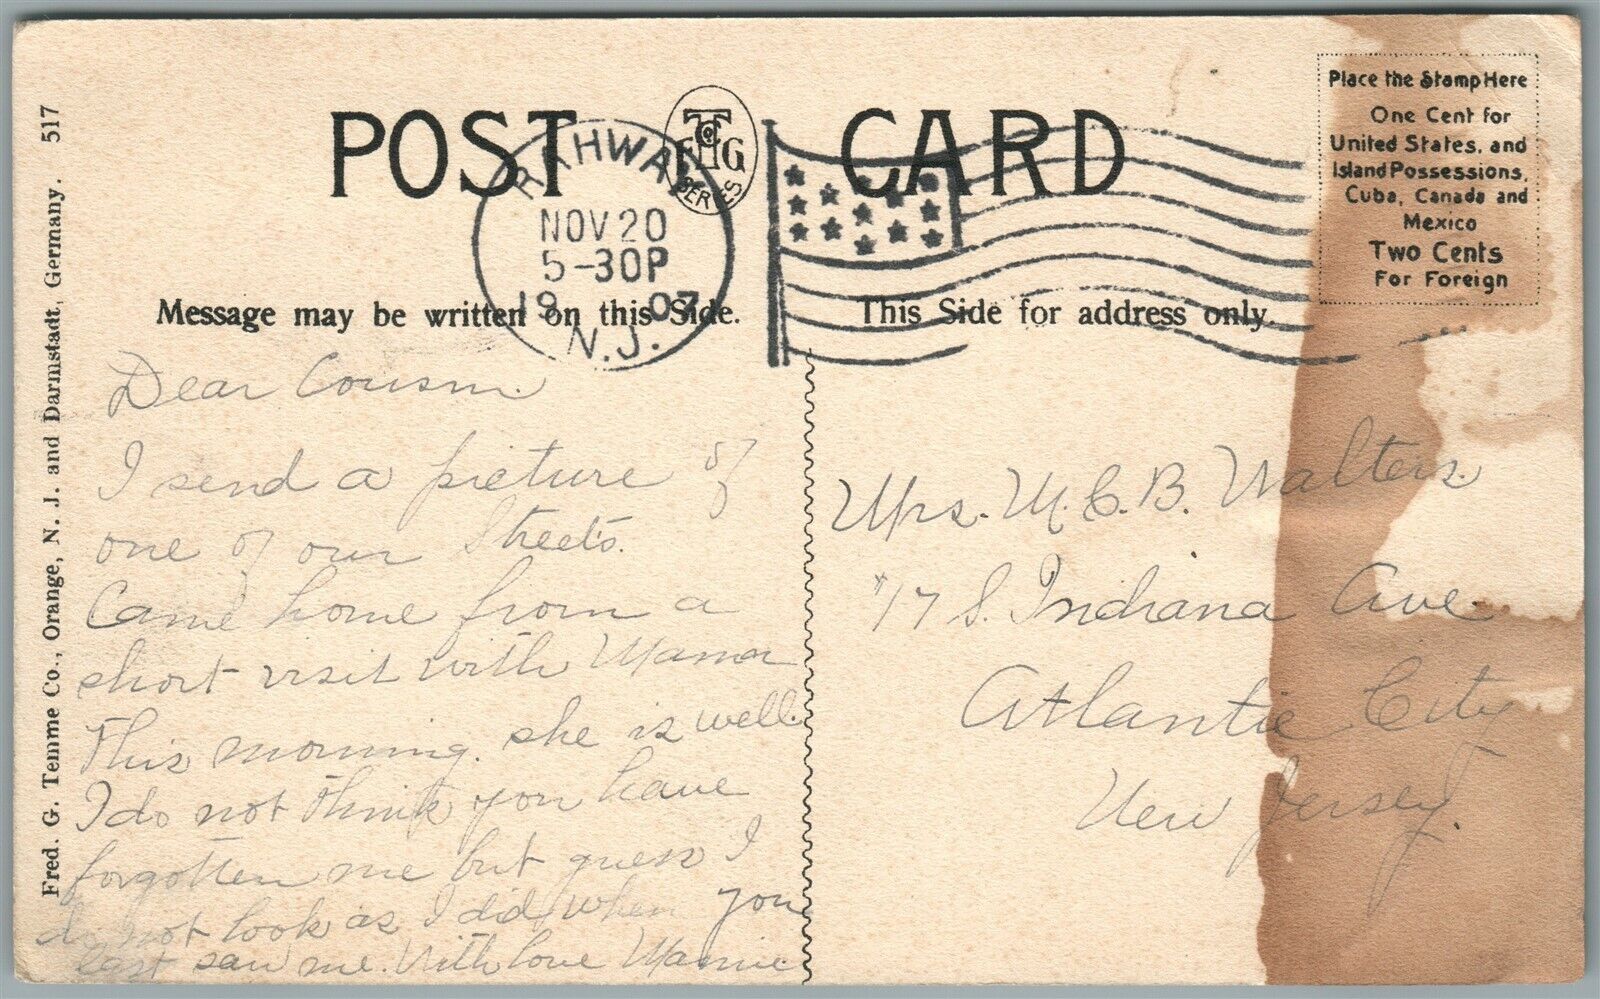 POST CARD
T Co F G
SERIES
RAHWAY
NOV 20
5-30P
19 07
N.J.
Place the Stamp Here
One Cent for
United States, and
Island Possessions,
Cuba, Canada and
Mexico
Two Cents
For Foreign
Message may be written on this Side.
This Side for address only.
Fred. G. Temme Co., Orange, N. J. and Darmstadt, Germany. 517
Dear Cousin
I send a picture of
one of our Streets.
Came home from a
short visit with Mama
This morning. she is well.
I do not think you have
forgotten me but guess I
do not look as I did when you
last saw me. With love Mamie
Mrs. M. C. B. Walters.
#17 S. Indiana Ave.
Atlantic City
New Jersey.